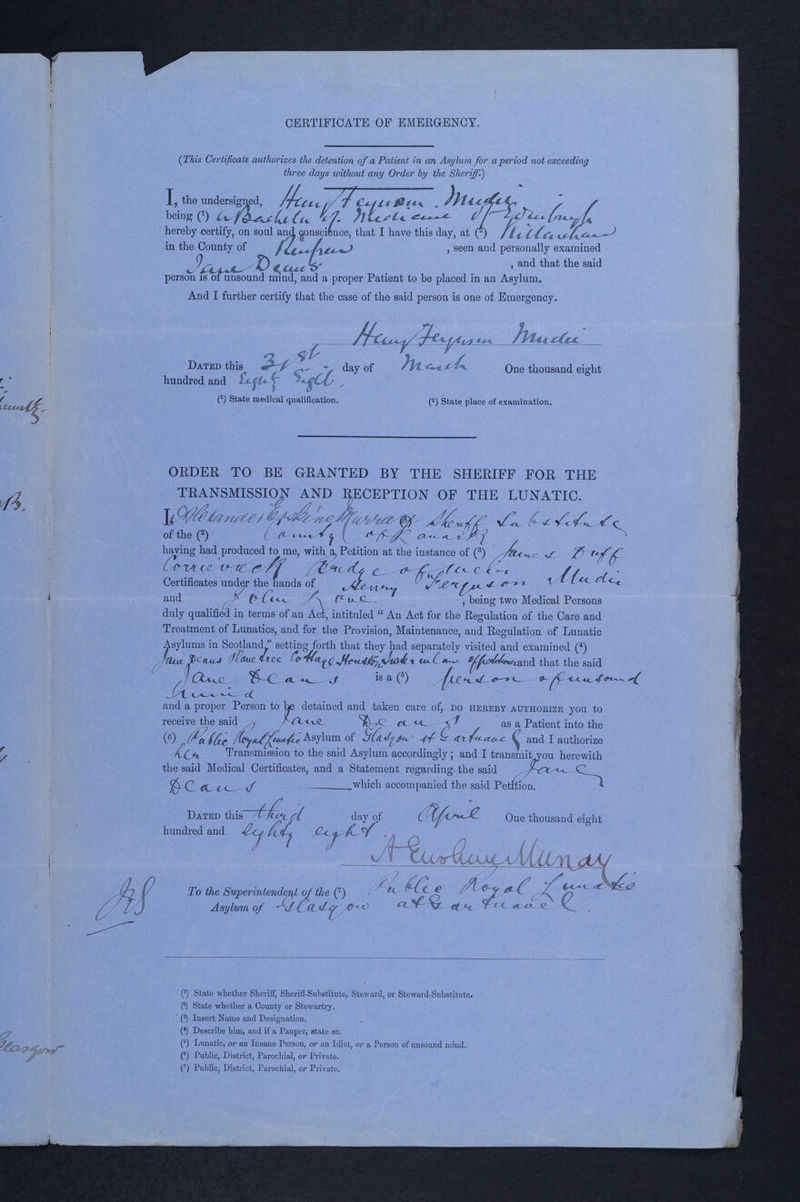 CERTIFICATE OF EMERGENCY.
(This Certificate authorizes the detention of a Patient in an Asylum for a period not exceeding
three days without any Order by the Sheriff.)
I, the undersigned, Henry Ferguson Mudie
being (1) a Bachelor of Medicine of Edinburgh
hereby certify, on soul and conscience, that I have this day, at (2) Killarchan
in the County of Renfrew, seen and personally examined
Jane Deans, and that the said
person is of unsound mind, and a proper Patient to be placed in an Asylum.
And I further certify that the case of the said person is one of Emergency.
Henry Ferguson Mudie
DATED this 31st day of March One thousand eight
hundred and Eighty Eight.
(1) State medical qualification. (2) State place of examination.
ORDER TO BE GRANTED BY THE SHERIFF FOR THE
TRANSMISSION AND RECEPTION OF THE LUNATIC.
I, Alexander Erskine Murray Sheriff Substitute
of the (2) County of Lanark
having had produced to me, with a Petition at the instance of (3) James Duff
Bridge of
Certificates under the hands of Henry Ferguson Mudie
and John, being two Medical Persons
duly qualified in terms of an Act, intituled "An Act for the Regulation of the Care and
Treatment of Lunatics, and for the Provision, Maintenance, and Regulation of Lunatic
Asylums in Scotland," setting forth that they had separately visited and examined (4)
Jane Deans Plane tree Cottage and that the said
Jane Deans is a (5) person of unsound
mind
and a proper Person to be detained and taken care of, DO HEREBY AUTHORIZE you to
receive the said Jane Deans as a Patient into the
(6) Public Royal Lunatic Asylum of Glasgow at Gartnavel and I authorize
her Transmission to the said Asylum accordingly; and I transmit you herewith
the said Medical Certificates, and a Statement regarding the said Jane
Deans which accompanied the said Petition.
DATED this third day of April One thousand eight
hundred and eighty eight.
A Erskine Murray
To the Superintendent of the (7) Public Royal Lunatic
Asylum of Glasgow at Gartnavel.
(1) State whether Sheriff, Sheriff-Substitute, Steward, or Steward-Substitute.
(2) State whether a County or Stewartry.
(3) Insert Name and Designation.
(4) Describe him, and if a Pauper, state so.
(5) Lunatic, or an Insane Person, or an Idiot, or a Person of unsound mind.
(6) Public, District, Parochial, or Private.
(7) Public, District, Parochial, or Private.
Glasgow